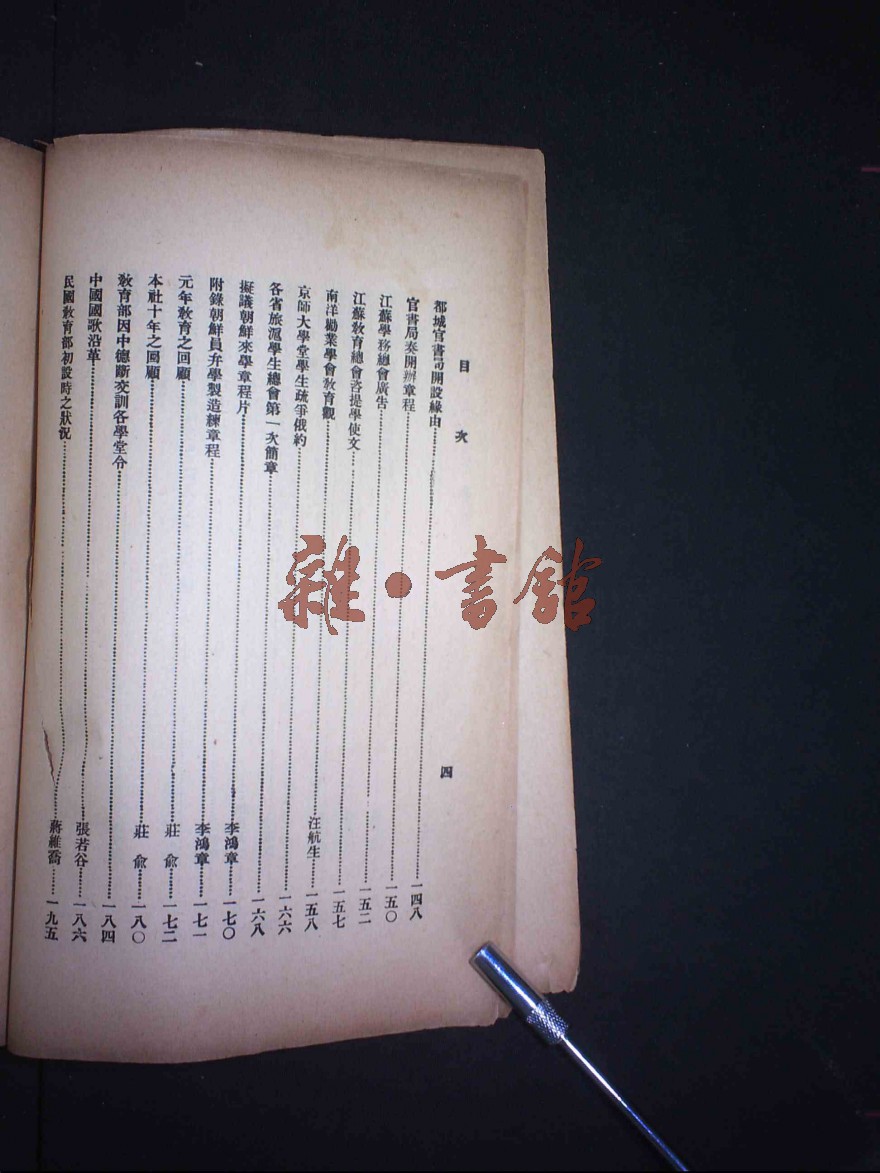 目次 四
都城官書局開設緣由……一四八
官書局奏開辦章程……一五〇
江蘇學務總會廣告……一五二
江蘇教育總會咨提學使文……一五七
南洋勸業學會教育觀……汪航生……一五八
京師大學堂學生疏爭俄約……一六六
各省旅滬學生總會第一次簡章……一六八
擬議朝鮮來學章程片……李鴻章……一七〇
附錄朝鮮員弁學製造練章程……李鴻章……一七一
元年教育之回顧……莊俞……一七二
本社十年之回顧……莊俞……一八〇
教育部因中德斷交訓各學堂令……一八四
中國國歌沿革……張若谷……一八六
民國教育部初設時之狀況……蔣維喬……一九五
雜·書館